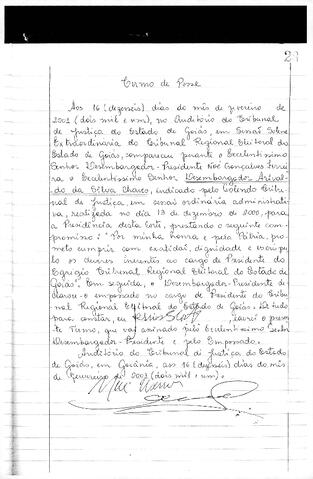 Termo de Posse
Aos 16 (dezesseis) dias do mês de fevereiro de
2001 (dois mil e um), no Auditório do Tribunal
de Justiça do Estado de Goiás, em Sessão
Extraordinária do Tribunal Regional Eleitoral do
Estado de Goiás, compareceu perante o Excelentíssimo
Senhor Desembargador-Presidente Noé Gonçalves Ferreira
o Excelentíssimo Senhor Desembargador
da Silva Chaves, indicado pelo Tribu-
nal de Justiça, em sessão ordinária administrati-
va, realizada no dia 13 de dezembro de 2000, para
a Presidência desta Corte, prestando o seguinte com-
promisso: "Por minha honra e pela Pátria, pro-
meto cumprir com exatidão, dignidade e escrúpu-
lo os deveres inerentes ao cargo de Presidente do
Egrégio Tribunal Regional Eleitoral do Estado de
Goiás". Em seguida, o Desembargador-Presidente de-
clarou-o empossado no cargo de Presidente do Tribu-
nal Regional Eleitoral do Estado de Goiás. E tudo
para constar, eu lavrei o presen-
te Termo, que vai assinado pelo Excelentíssimo Senhor
Desembargador-Presidente e pelo Empossado.
Auditório do Tribunal de Justiça do Estado
de Goiás, em Goiânia, aos 16 (dezesseis) dias do mês
de fevereiro de 2001 (dois mil e um).